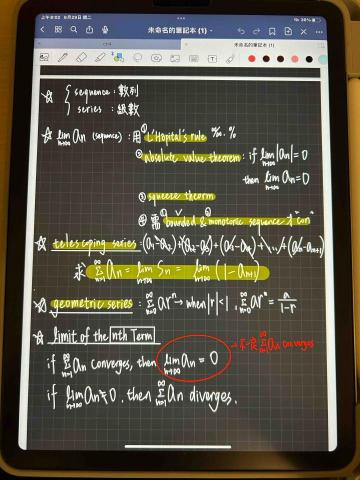 上午8:02 8月29日 週二 36%
未命名的筆記本 (1)
未命名的筆記本 (1)
☆ { sequence : 數列
series : 級數
☆ lim n→∞ an (sequence) : 用 ① L'Hopital's rule ∞/∞ . 0/0
② absolute value theorem : if lim n→∞ |an| = 0
then lim n→∞ an = 0
③ squeeze theorm
④ 需 ① bounded & ② monotonic sequence 才 "con"
☆ telescoping series : (a1-a2)+(a2-a3)+(a3-a4)+ ... +(an-an+1)
求 ∞Σn=1 an = lim n→∞ Sn = lim n→∞ (1-an+1)
☆ geometric series : ∞Σn=0 ar^n → when |r|<1 , ∞Σn=0 ar^n = a/(1-r)
☆ limit of the nth Term
→ 不一定 ∞Σn=1 an converges
if ∞Σn=1 an converges, then lim n→∞ an = 0
if lim n→∞ an ≠ 0 , then ∞Σn=1 an diverges.